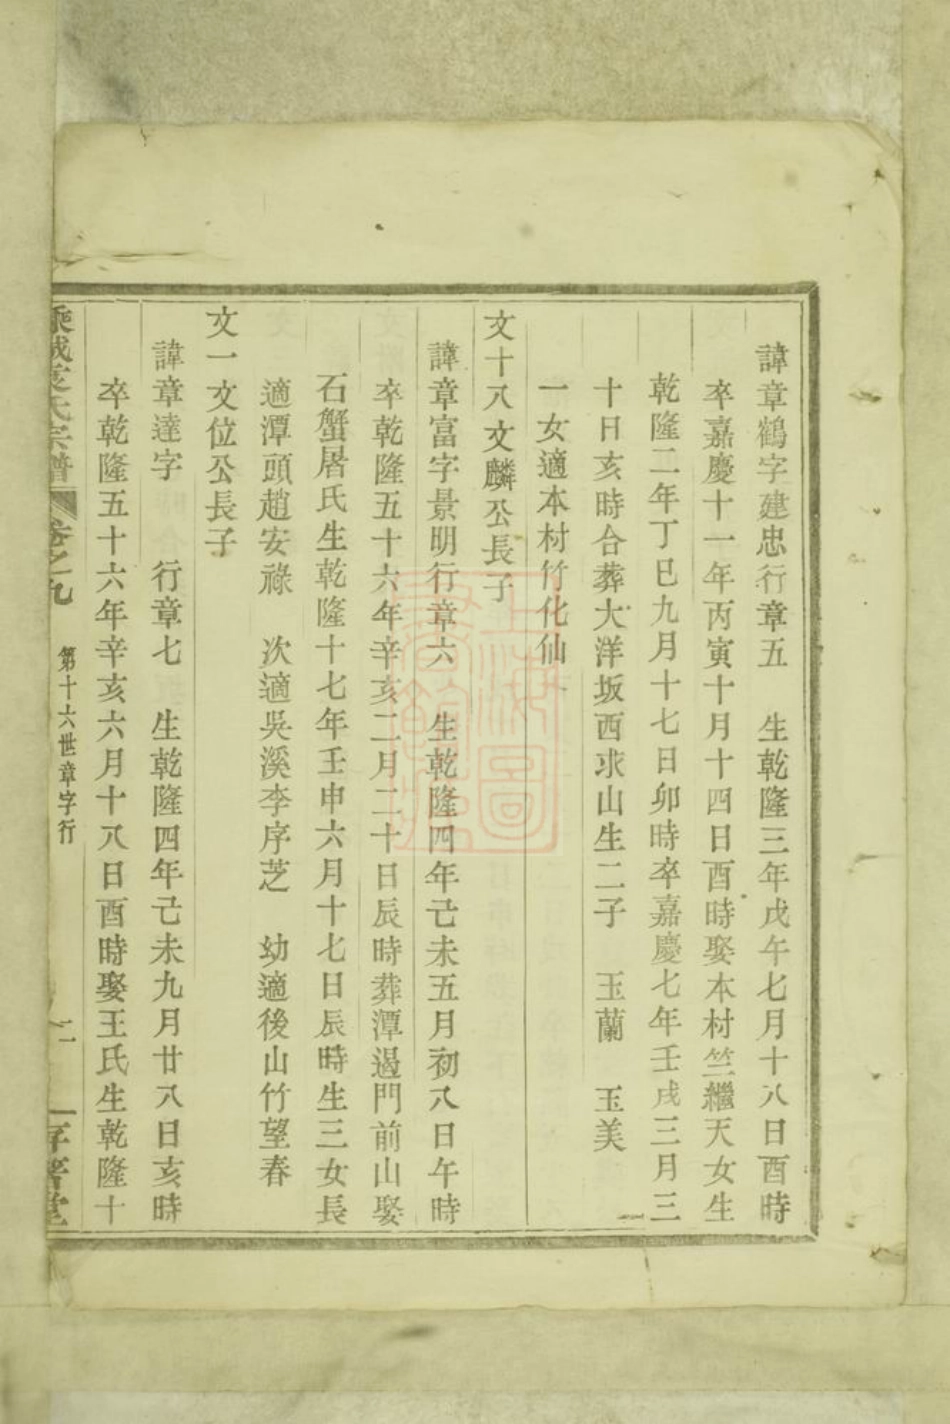 諱章鶴字建忠行章五　生乾隆三年戊午七月十八日酉時
卒嘉慶十一年丙寅十月十四日酉時娶本村竺繼天女生
乾隆二年丁巳九月十七日卯時卒嘉慶七年壬戌三月三
十日亥時合葬大洋坂西求山生二子　玉蘭　玉美　一
一女適本村竹化仙
文十八文麟公長子
諱章富字景明行章六　生乾隆四年己未五月初八日午時
卒乾隆五十六年辛亥二月二十日辰時葬潭邊門前山娶
石蟹屠氏生乾隆十七年壬申六月十七日辰時生三女長
適潭頭趙安祿　次適吳溪李序芝　幼適後山竹望春
文一文位公長子
諱章達字　　行章七　生乾隆四年己未九月廿八日亥時
卒乾隆五十六年辛亥六月十八日酉時娶王氏生乾隆十
氏宗譜　卷之九　第十六世章字行　二　堂